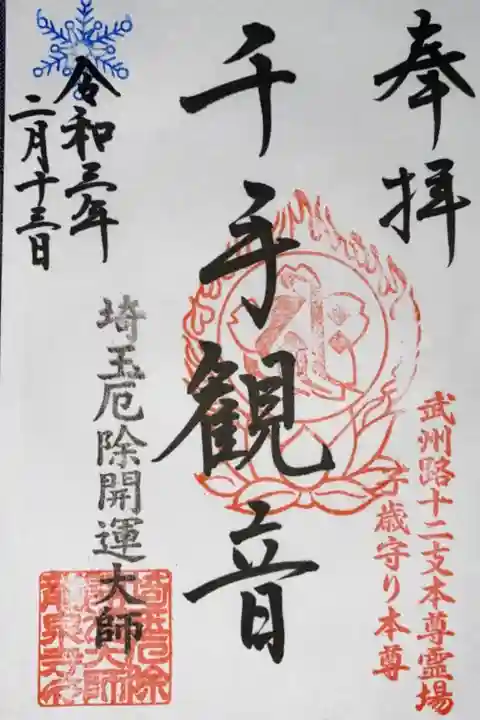 奉拝
武州路十二支本尊霊場
子歳守り本尊
千手観音
令和三年
二月十三日
埼玉厄除開運大師